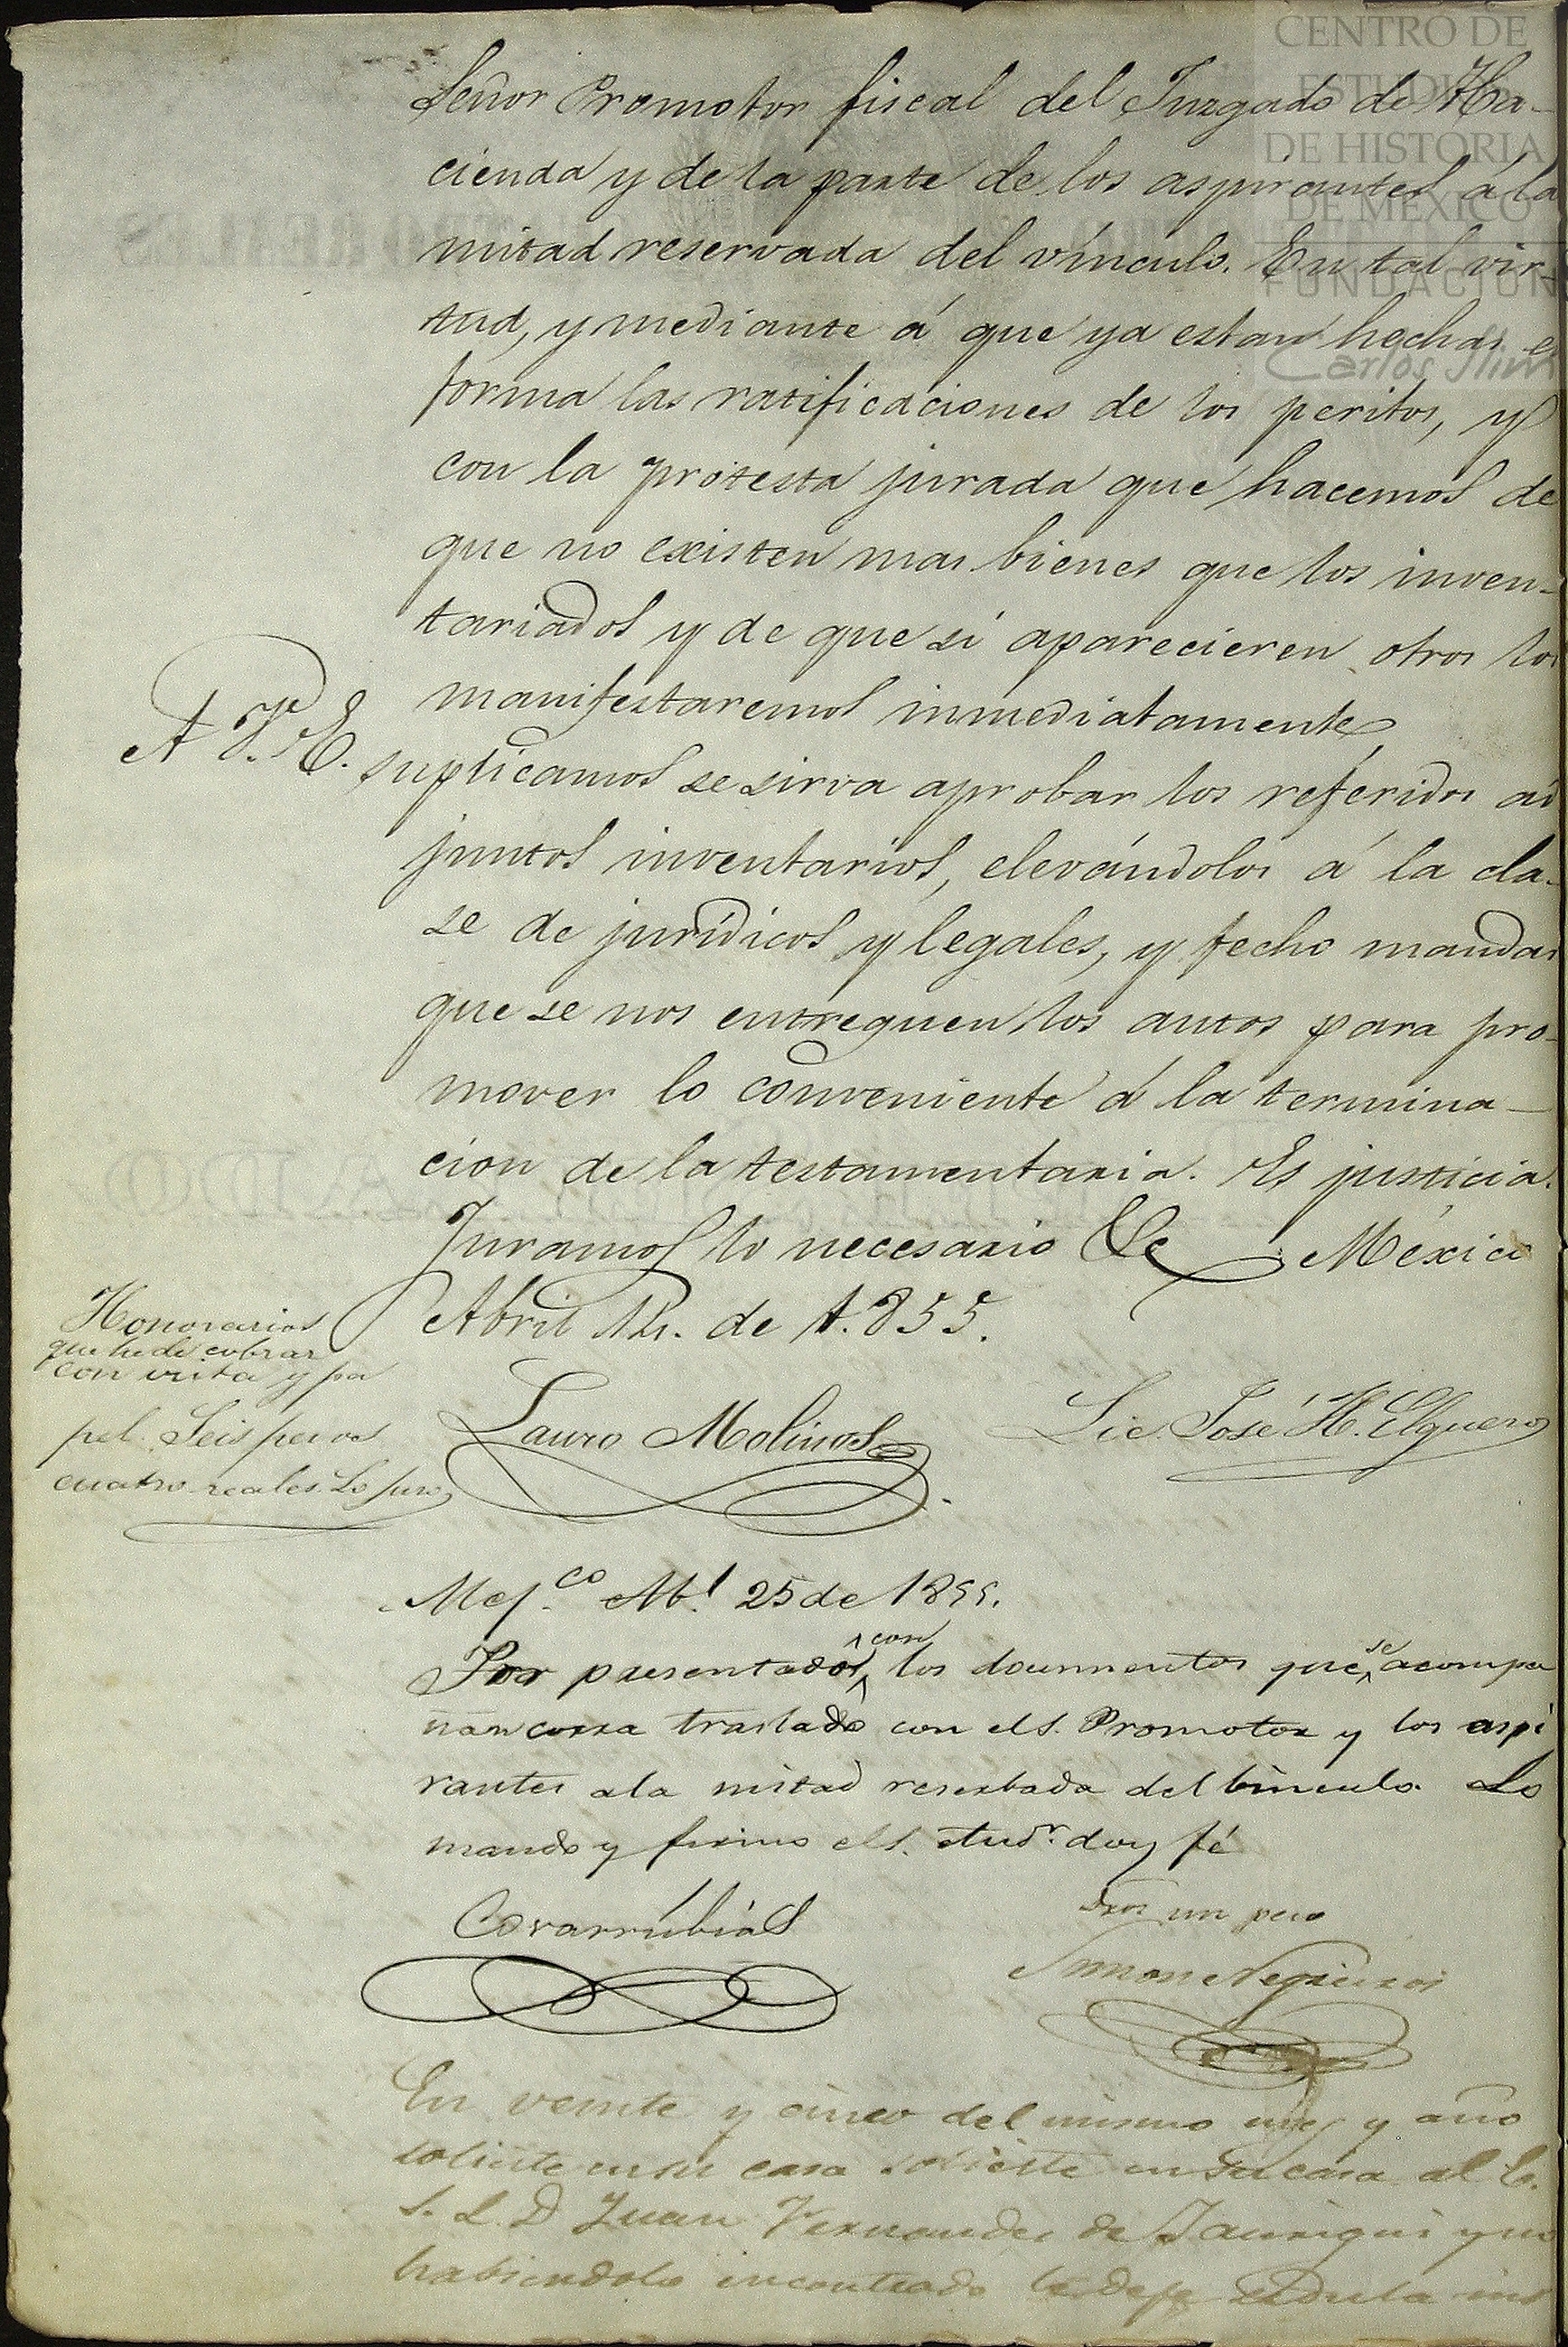 CENTRO DE
ESTUDIOS
DE HISTORIA
DE MEXICO
FUNDACION
Carlos Slim
Señor Promotor fiscal del Juzgado de Ha-
cienda y de la parte de los aspirantes á la
mitad reservada del vínculo. En tal vir-
tud, y mediante á que ya estan hechas e
forma las ratificaciones de los peritos, y
con la protesta jurada que hacemos de
que no existen mas bienes que los inven-
tariados y de que si aparecieren otros los
manifestaremos inmediatamente
A V. E. suplicamos se sirva aprobar los referidos ad
juntos inventarios, elevándolos á la cla-
se de jurídicos y legales, y fecho mandar
que se nos entreguen los autos para pro-
mover lo conveniente á la termina-
cion de la testamentaria. Es justicia.
Juramos lo necesario &c México
Abril 12. de 1.855.
Honorarios
que he de cobrar
con vista y pa
pel. Seis pesos
cuatro reales. Lo juro
Lauro Molinos
Lic. José H. Elguero
Mej.co Ab.l 25 de 1855.
Por presentados con los documentos que se acompa
ñan corra traslado con el S. Promotor y los aspi
rantes a la mitad reserbada del binculo. Lo
mando y firmo el S. Aud.r doy fé
Covarrubias
Dros un peso
Simon Negreiros
En veinte y cinco del mismo mes y año
solicite en su casa solicite en su casa al
S. L. D Juan Fernandez de Jauregui y no
habiendolo encontrado le deje cedula ins